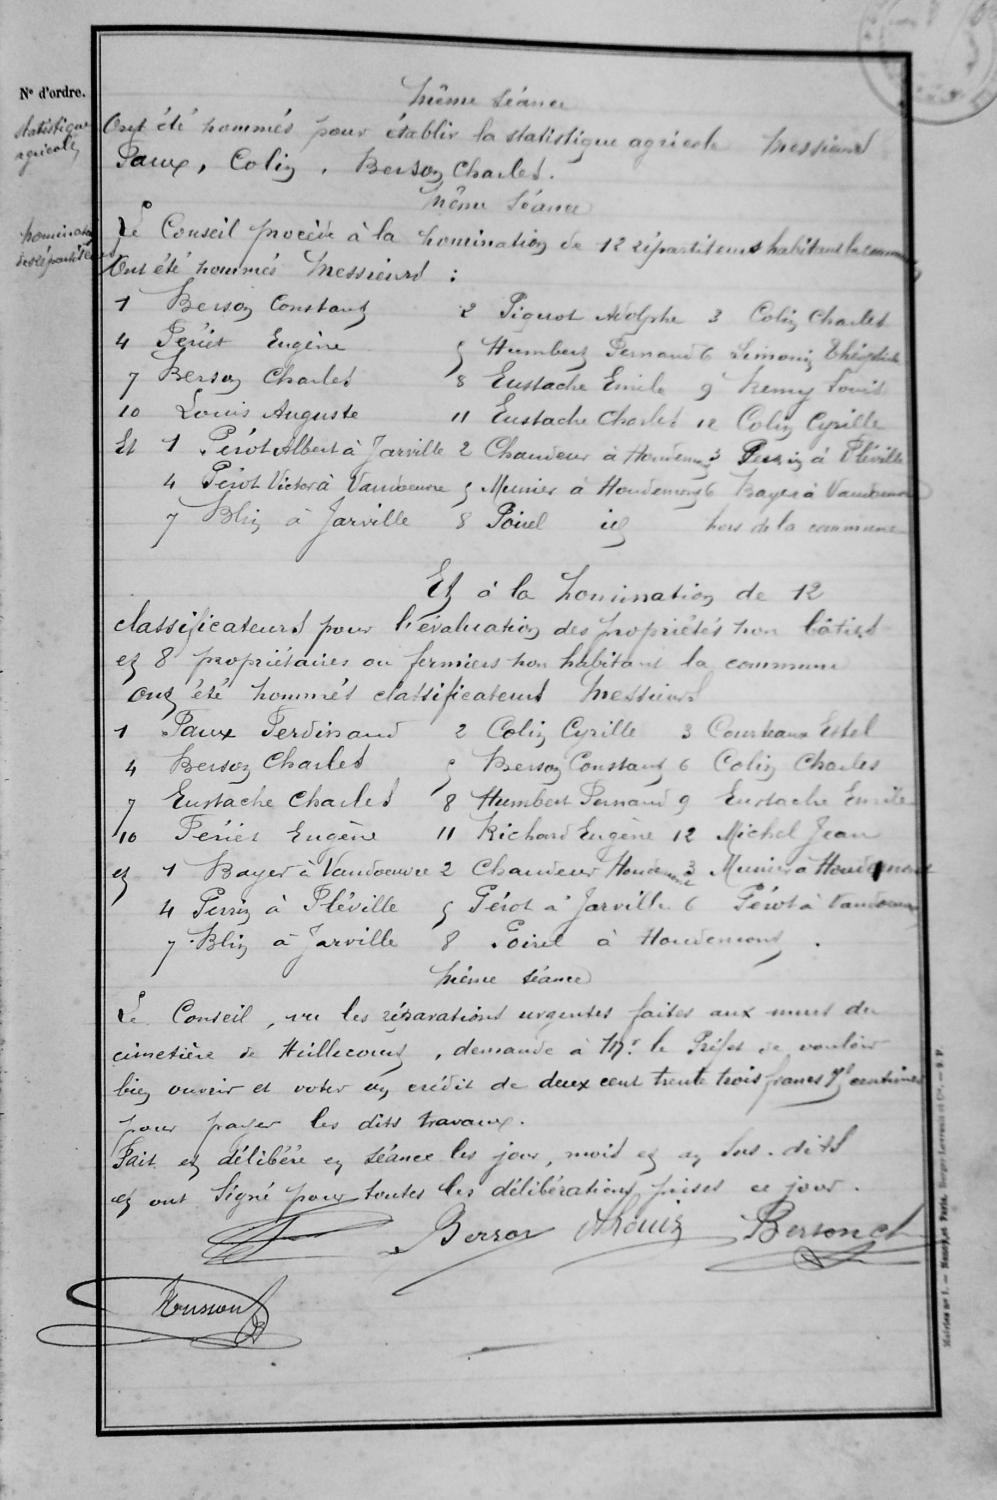 N° d'ordre.
Même séance
statistique
agricole
Ont été nommés pour établir la statistique agricole Messieurs
Paux, Colin, Berson Charles.
Même séance
nomination
des répartiteurs
Le Conseil procède à la nomination de 12 répartiteurs habitant la commune
Ont été nommés Messieurs :
1 Berson Constant 2 Piquot Adolphe 3 Colin Charles
4 Périet Eugène 5 Humbert Fernand 6 Simonin
7 Berson Charles 8 Eustache Emile 9 Remy Louis
10 Louis Auguste 11 Eustache Charles 12 Colin Cyrille
Et 1 Pérot Albert à Jarville 2 Chaudeur à Houdemont 3 Perrin à Fléville
4 Pérot Victor à Vandoeuvre 5 Munier à Houdemont 6 Bayer à Vandoeuvre
7 Blin à Jarville 8 Poirel id hors de la commune
Et à la nomination de 12
classificateurs pour l'évaluation des propriétés non bâties
et 8 propriétaires ou fermiers non habitant la commune
ont été nommés classificateurs Messieurs
1 Paux Ferdinand 2 Colin Cyrille 3 Courteaux Estel
4 Berson Charles 5 Berson Constant 6 Colin Charles
7 Eustache Charles 8 Humbert Fernand 9 Eustache Emile
10 Périet Eugène 11 Richard Eugène 12 Michel Jean
et 1 Bayer à Vandoeuvre 2 Chaudeur Houdemont 3 Munier à Houdemont
4 Perrin à Fléville 5 Pérot à Jarville 6 Pérot à Vandoeuvre
7 Blin à Jarville 8 Poirel à Houdemont.
Même séance
Le Conseil, vu les réparations urgentes faites aux murs du
cimetière de Heillecourt, demande à Mr. le Préfet de vouloir
bien ouvrir et voter un crédit de deux cent trente trois francs centimes
pour payer les dits travaux.
Fait et délibéré en séance les jour, mois et an sus-dits
et ont signé pour toutes les délibérations prises ce jour.
Berson Berson ch
Mairies n° 1. — Nancy et Paris. Berger-Levrault et Cie.